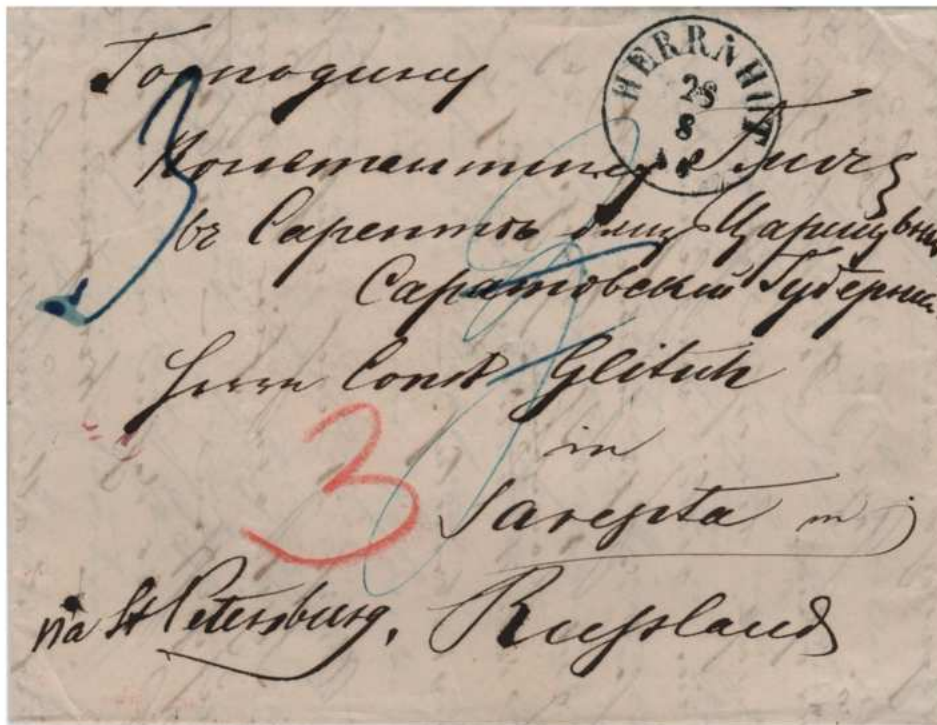 Господину
HERRNHUT
28
8
3
Константину Гличъ
въ Сарептъ близ Царицына
Саратовской Губерніи
Herrn Const Glitsch
in
3
Sarepta in
via St Petersburg, Russland